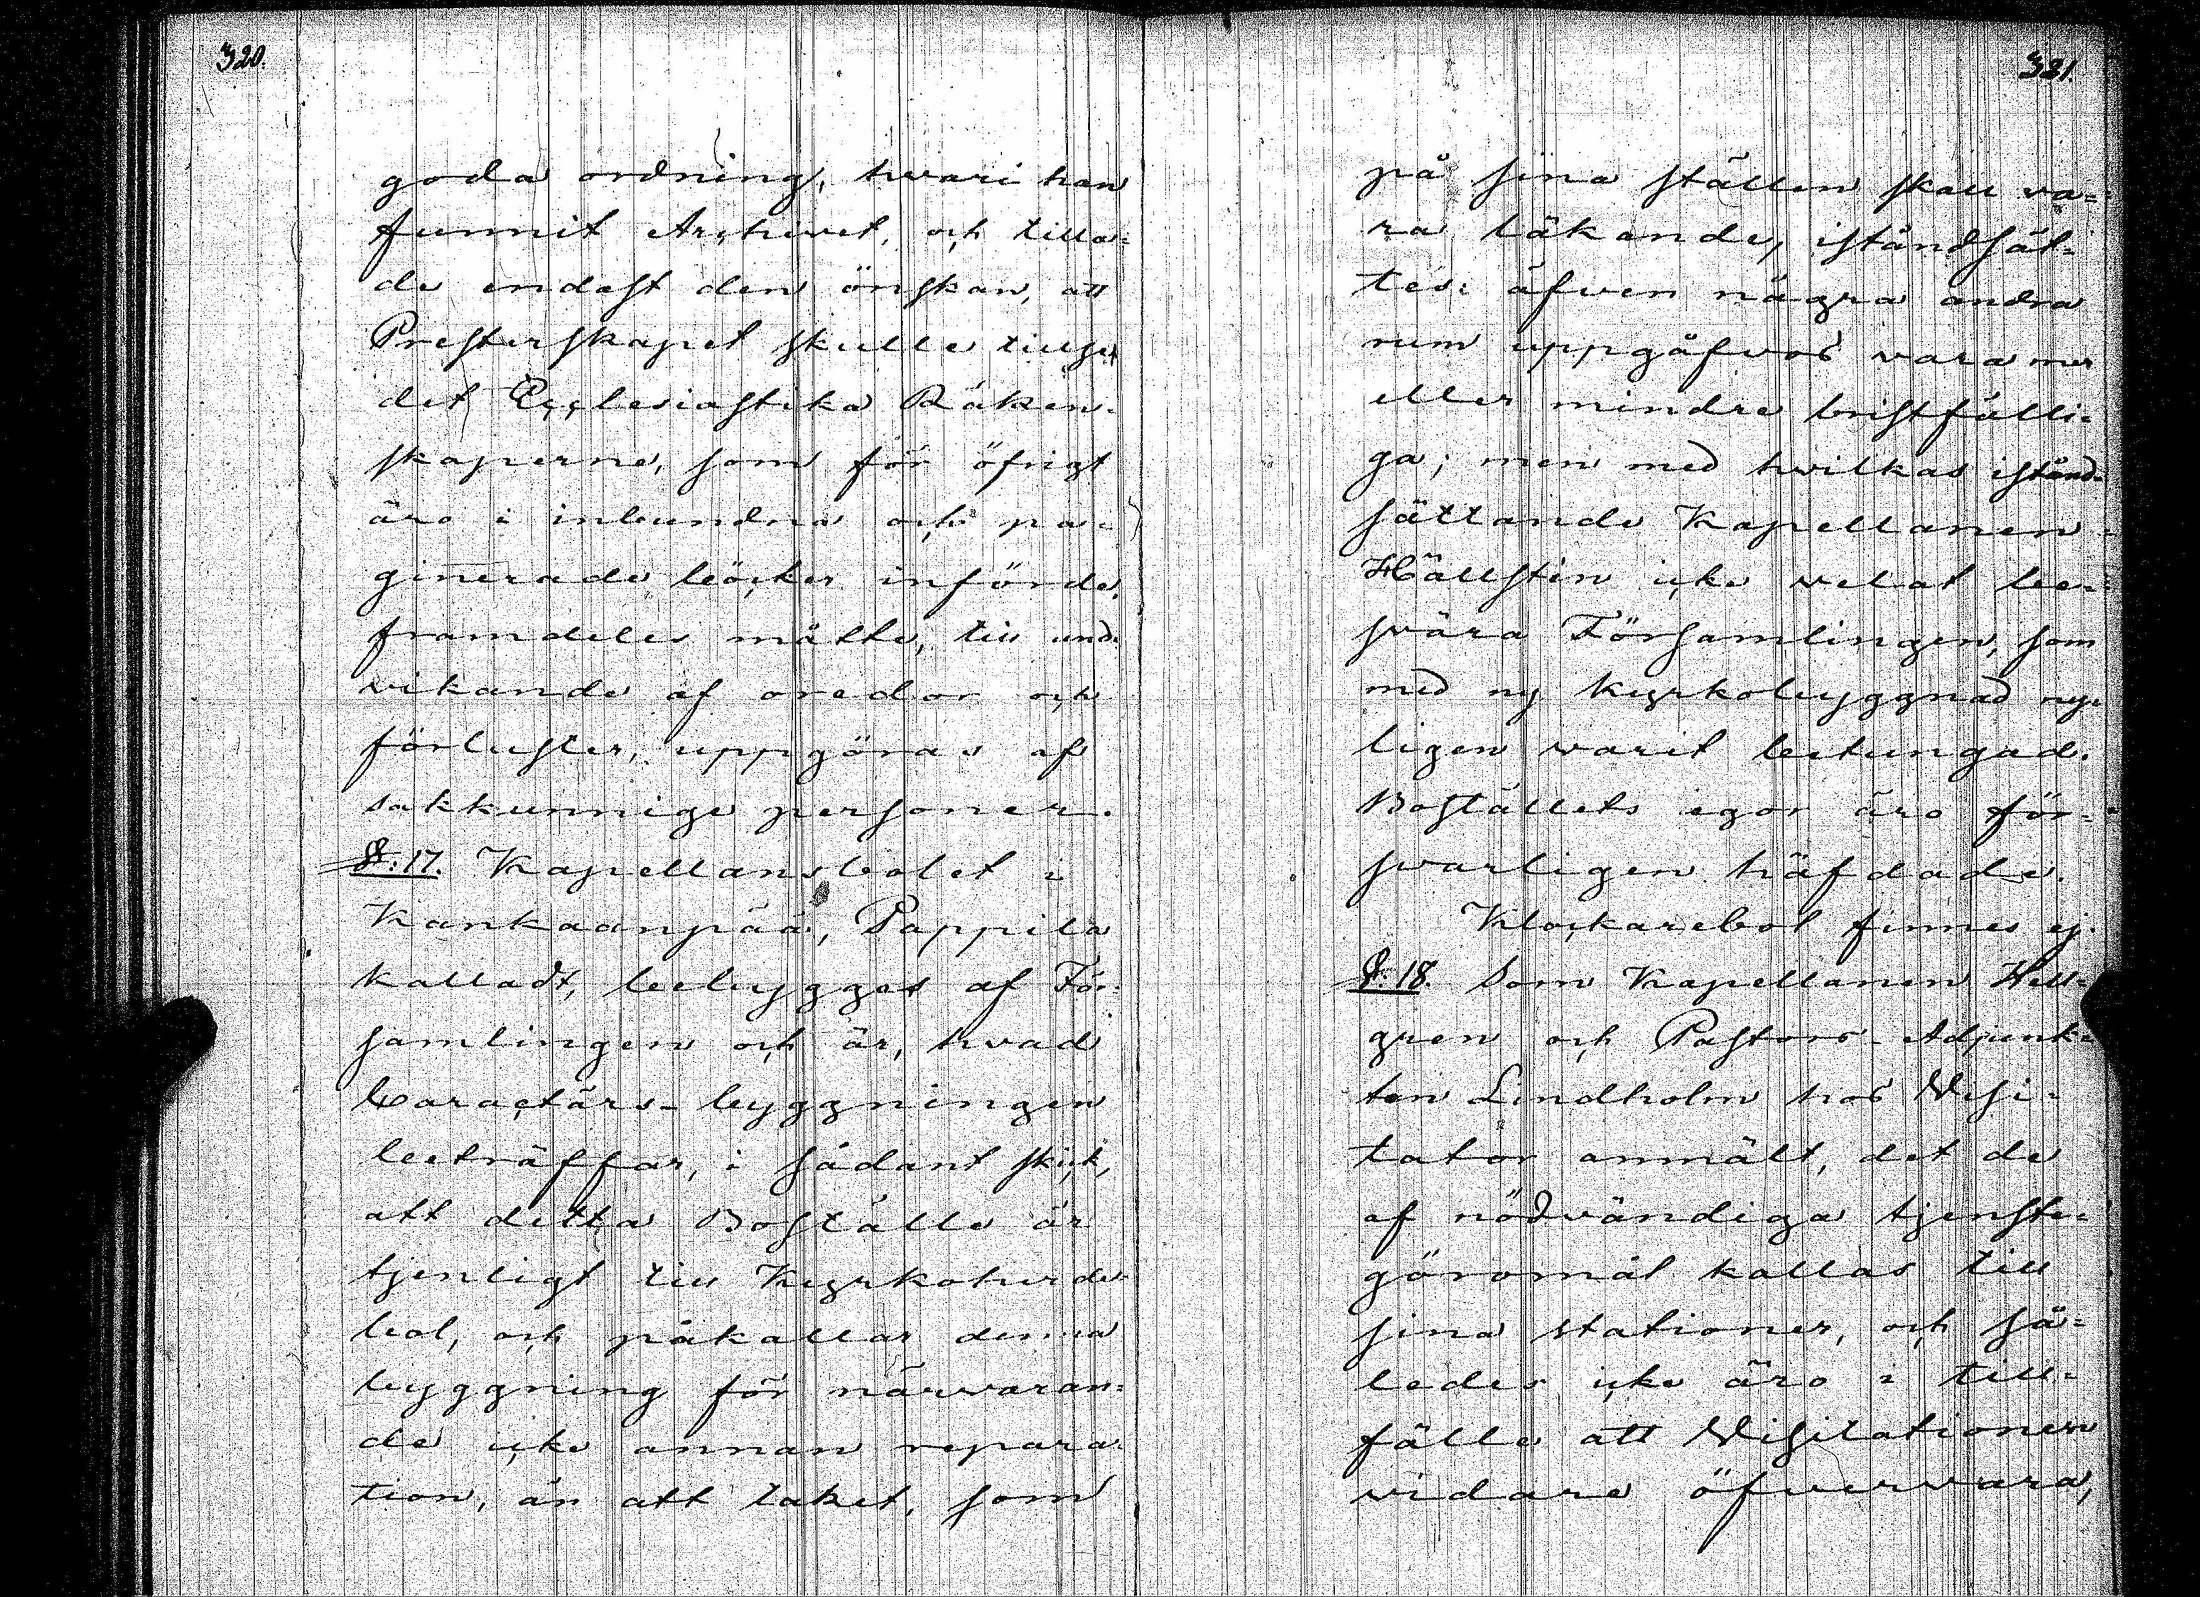 320.
goda ordning, hvari han
funnit Archivet, och tilla=
de endast den önskan, att
Presterskapet skulle tillse,
det Ecclesiastika Räken=
skaperne, som för öfrigt
äro i inbundna och pa=
ginerade böcker införde,
framdeles måtte, till und=
vikande af oredor och
förluster, uppgöras af
sakkunnige personer.
§: 17. Kapellansbolet i
Kankaanpää, Pappila
kalladt, bebygges af För=
samlingen och är, hvad
Caractärs-byggningen
beträffar, i sådant skick,
att detta Boställe är
tjenligt till Kyrkoherde=
bol, och påkallar denna
byggning för närvaran=
de icke annan repara=
tion, än att taket, som
321
på sina ställen skall va=
ra läkande, iståndsät=
tes: äfven några andra
rum uppgåfvos vara mer
eller mindre bristfälli=
ga; men med hvilkas istånd=
sättande Kapellanen
Hällstén icke velat be=
svära Församlingen, som
med ny kyrkobyggnad ny=
ligen varit betungad.
Boställets egor äro för=
svarligen häfdade.
Klockarebol finnes ej.
§: 18. Som Kapellanen Hell=
gren och Pastors-Adjunk=
ten Lindholm hos Visi=
tator anmält, det de
af nödvändiga tjenste=
göromål kallas till
sina stationer, och så=
ledes icke äro i till=
fälle att Visitationen
vidare öfvervara,